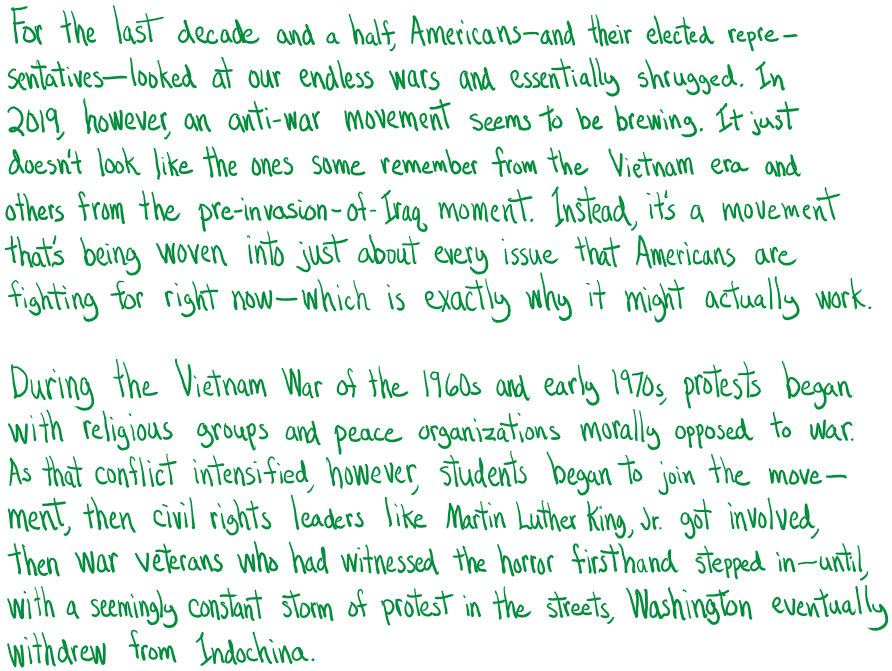 For the last decade and a half, Americans—and their elected repre-
sentatives—looked at our endless wars and essentially shrugged. In
2019, however, an anti-war movement seems to be brewing. It just
doesn't look like the ones some remember from the Vietnam era and
others from the pre-invasion-of-Iraq moment. Instead, it's a movement
that's being woven into just about every issue that Americans are
fighting for right now—which is exactly why it might actually work.

During the Vietnam War of the 1960s and early 1970s, protests began
with religious groups and peace organizations morally opposed to war.
As that conflict intensified, however, students began to join the move-
ment, then civil rights leaders like Martin Luther King, Jr. got involved,
then war veterans who had witnessed the horror firsthand stepped in—until,
with a seemingly constant storm of protest in the streets, Washington eventually
withdrew from Indochina.